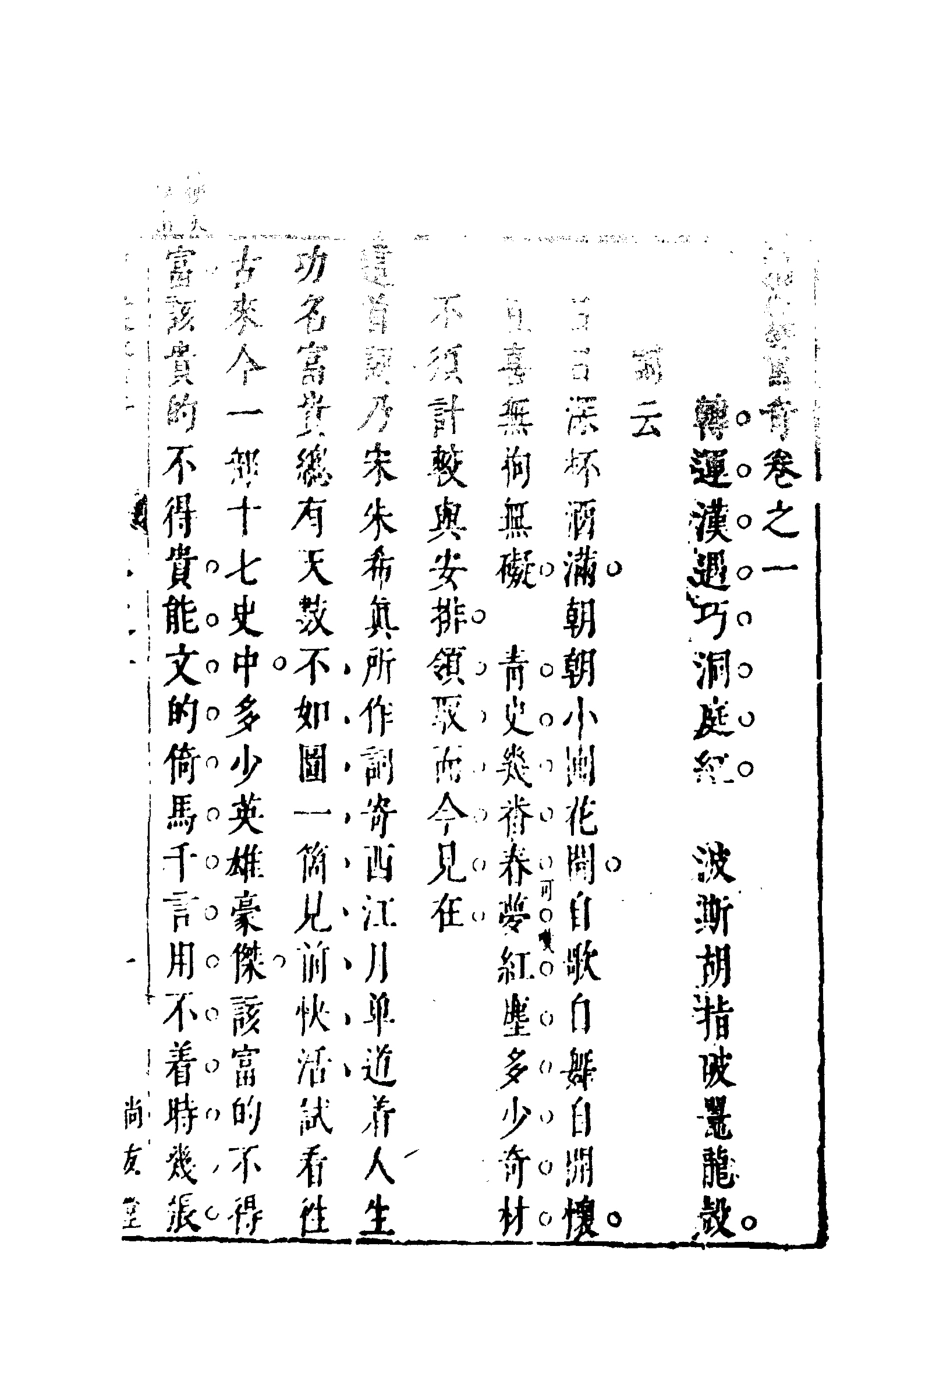 拍案驚奇卷之一
轉運漢遇巧洞庭紅　波斯胡指破鼉龍殼
詞云
日日深杯酒滿朝朝小圃花開自歌自舞自開懷
且喜無拘無礙　青史幾番春夢紅塵多少奇材
可嘆
不須計較與安排領取而今見在
這首詞乃宋朱希真所作詞寄西江月单道着人生
功名富貴總有天數不如圖一箇見前快活試看往
古來今一部十七史中多少英雄豪傑該富的不得
富該貴的不得貴能文的倚馬千言用不着時幾張
尚友堂